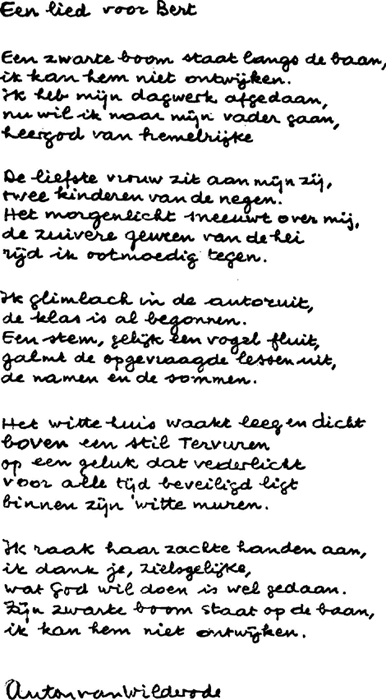 Een lied voor Bert
Een zwarte boom staat langs de baan,
ik kan hem niet ontwijken.
Ik heb mijn dagwerk afgedaan,
nu wil ik naar mijn vader gaan,
heergod van hemelrijke
De liefste vrouw zit aan mijn zij,
twee kinderen van de negen.
Het morgenlicht sneeuwt over mij,
de zuivere geuren van de hei
rijd ik ootmoedig tegen.
Ik glimlach in de autoruit,
de klas is al begonnen.
Een stem, gelijk een vogel fluit,
galmt de opgevraagde lessen uit,
de namen en de sommen.
Het witte huis waakt leeg en dicht
boven een stil Tervuren
op een geluk dat vederlicht
voor alle tijd beveiligd ligt
binnen zijn witte muren.
Ik raak haar zachte handen aan,
ik dank je, zielsgelijke,
wat God wil doen is wel gedaan.
Zijn zwarte boom staat op de baan,
ik kan hem niet ontwijken.
Anton van Wilderode